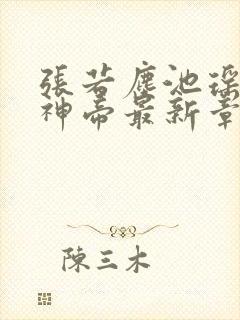 張若塵池瑤
神帝最新章
陳三木